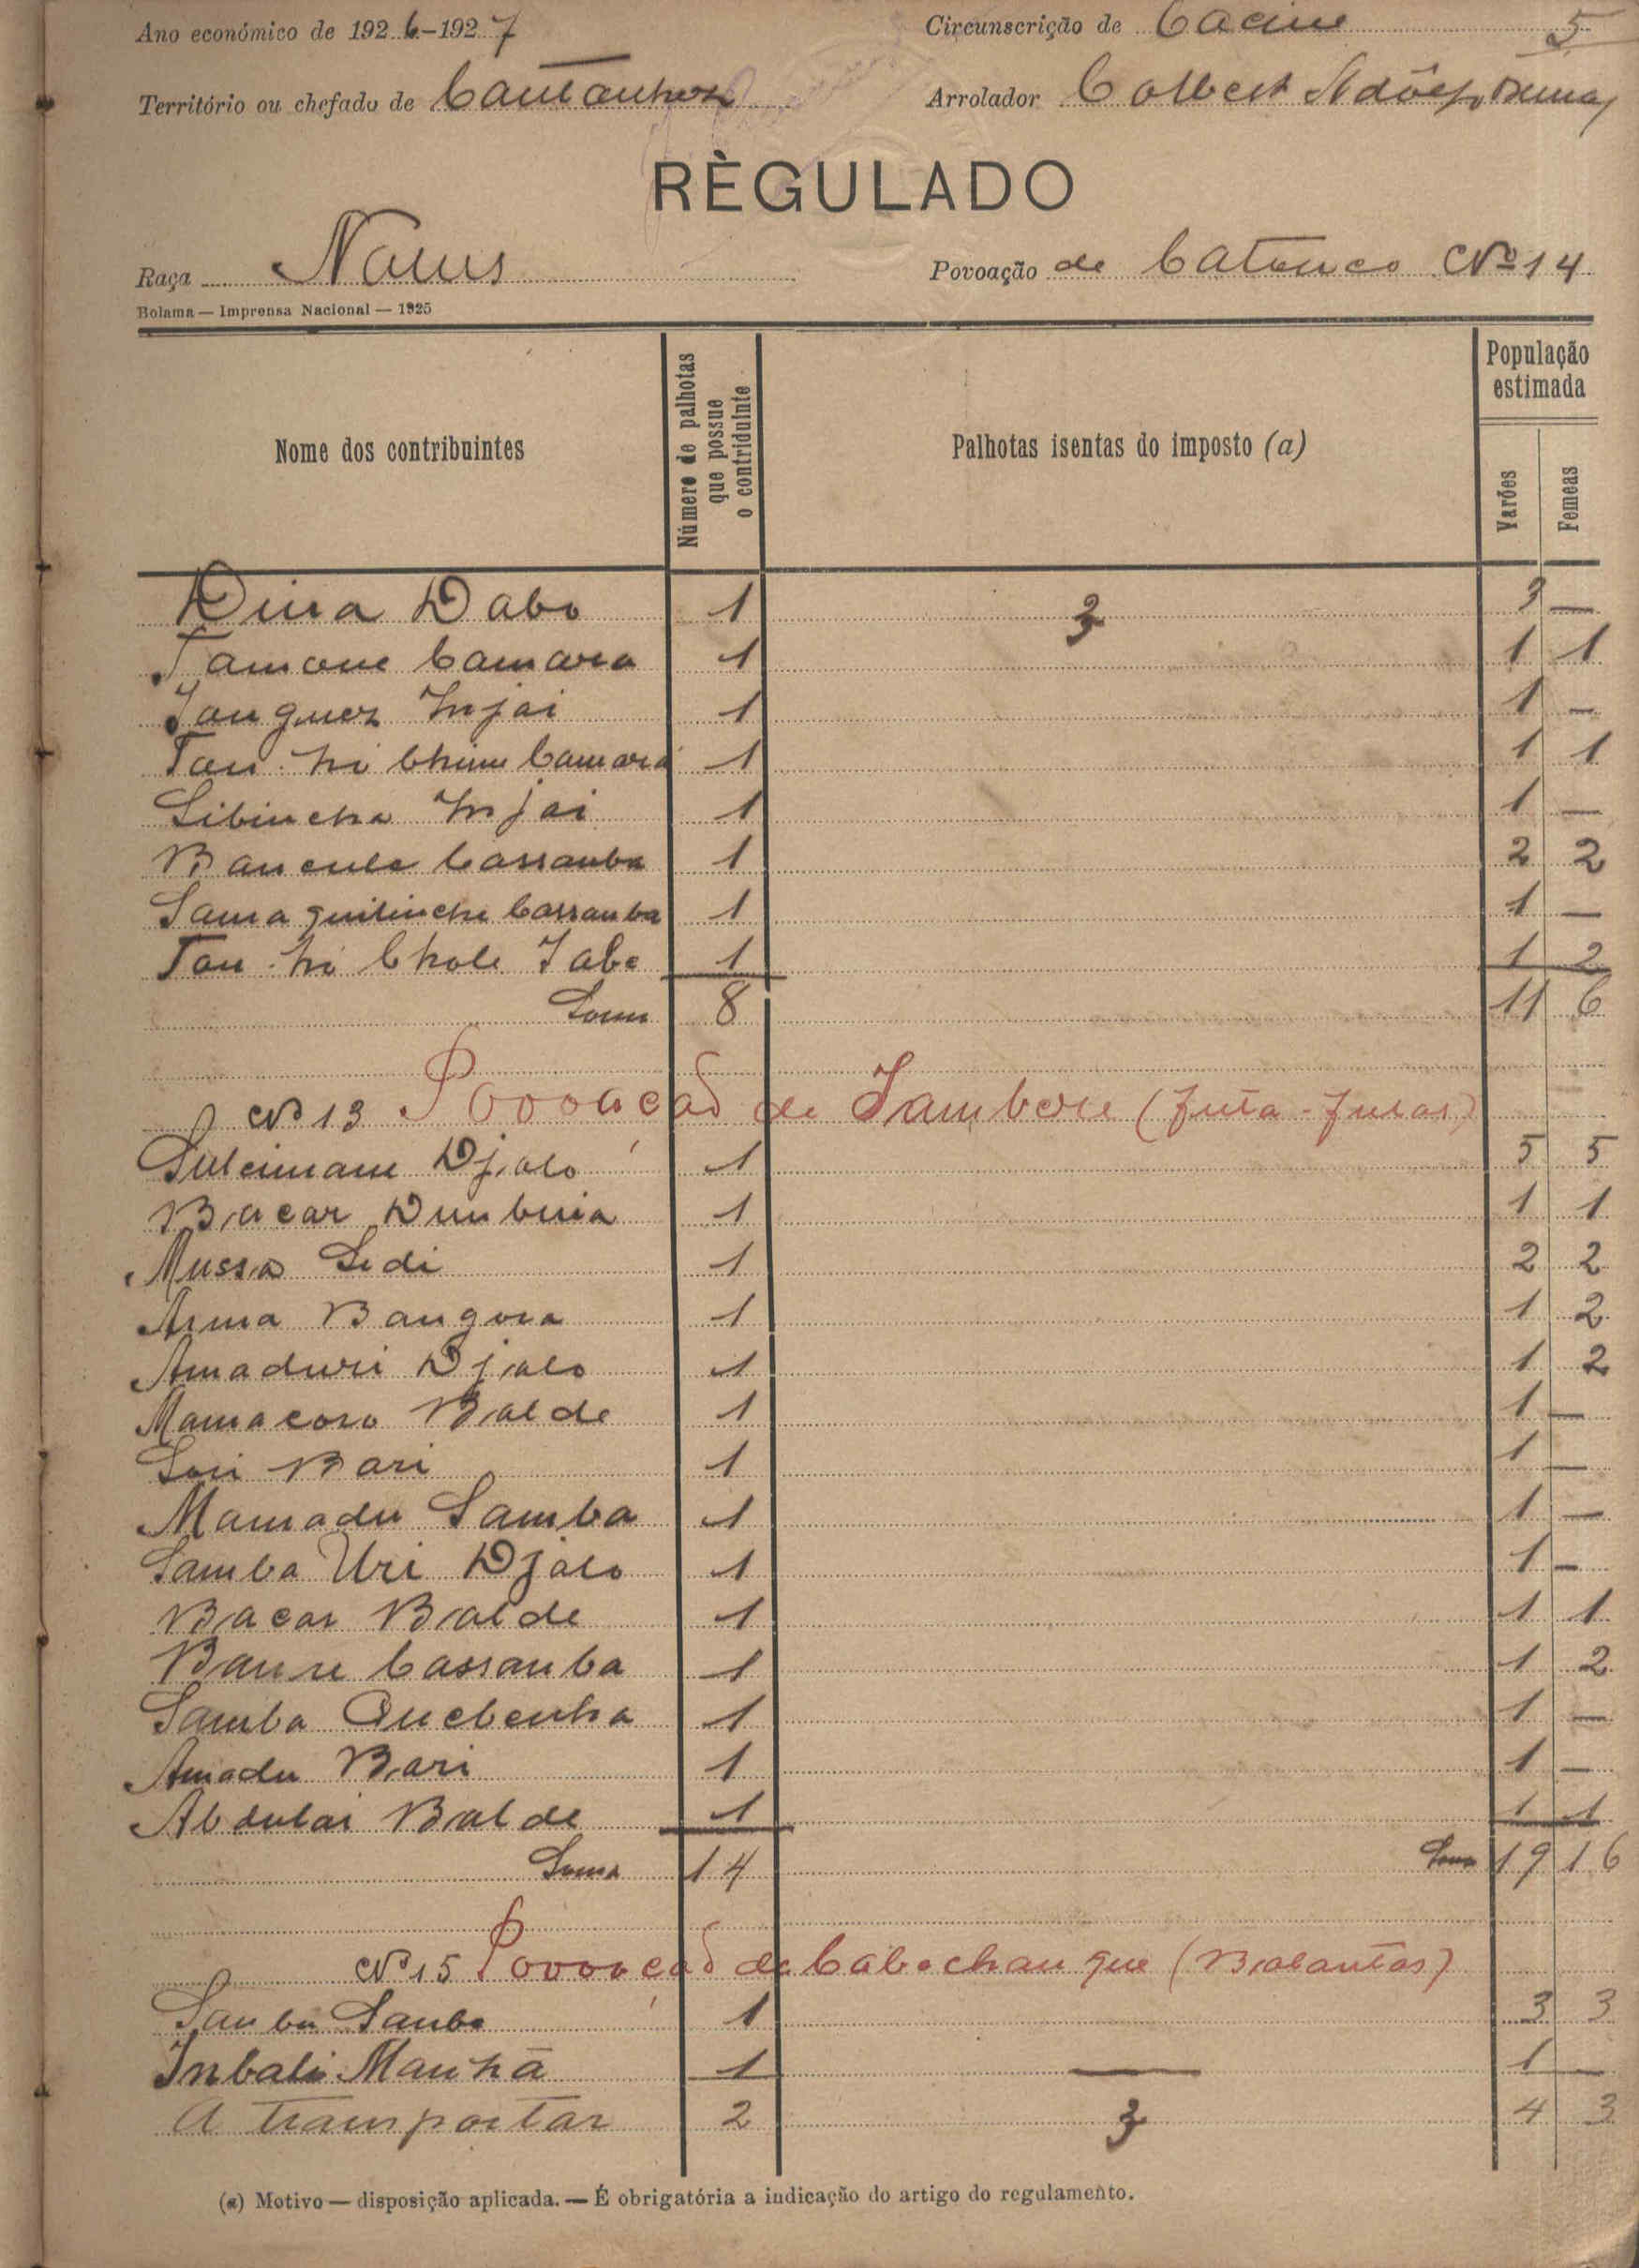 Ano económico de 1926-1927 Circunscrição de Cacine 5
Território ou chefado de Cantanhez Arrolador Colbert
RÈGULADO
Raça Nalus Povoação de Catunco Nº 14
Bolama — Imprensa Nacional — 1925
Nome dos contribuintes Número de palhotas que possue o contriduinte Palhotas isentas do imposto (a) População estimada Varões Femeas
Dabo 1 3 3 —
Tamone Camara 1 1 1
Injai 1 1 —
Camara 1 1 1
Injai 1 1 —
Cassamba 1 2 2
Cassamba 1 1 —
1 1 2
Soma 8 11 6
Nº 13 Povoação de Jambere (futa-fulas)
Suleimane Djalo 1 5 5
Bacar Dumbuia 1 1 1
Mussa Sedi 1 2 2
Bangora 1 1 2
Amaduri Djalo 1 1 2
Mamacoro Balde 1 1 —
Sori Bari 1 1 —
Mamadu Samba 1 1 —
Samba Uri Djalo 1 1 —
Bacar Balde 1 1 1
Cassamba 1 1 2
Samba Quebenha 1 1 —
Amadu Bari 1 1 —
Abdulai Balde 1 1 1
Soma 14 Soma 19 16
Nº 15 Povoação de Cabochanque (Balantas)
1 3 3
Inbali Manhã 1 — 1 —
A transportar 2 3 4 3
(a) Motivo — disposição aplicada. — É obrigatória a indicação do artigo do regulamento.